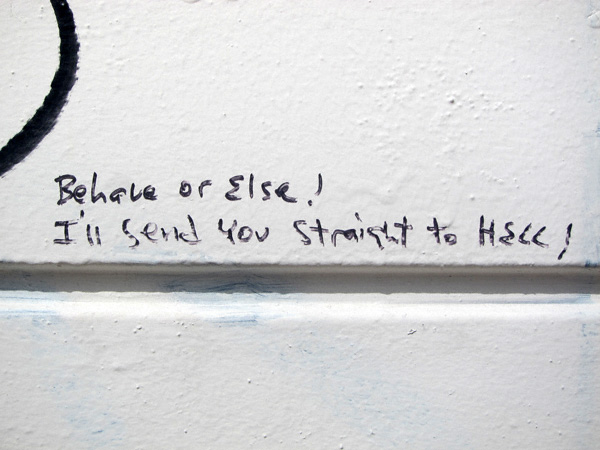 Behave or Else!
I'll Send You Straight to HELL!